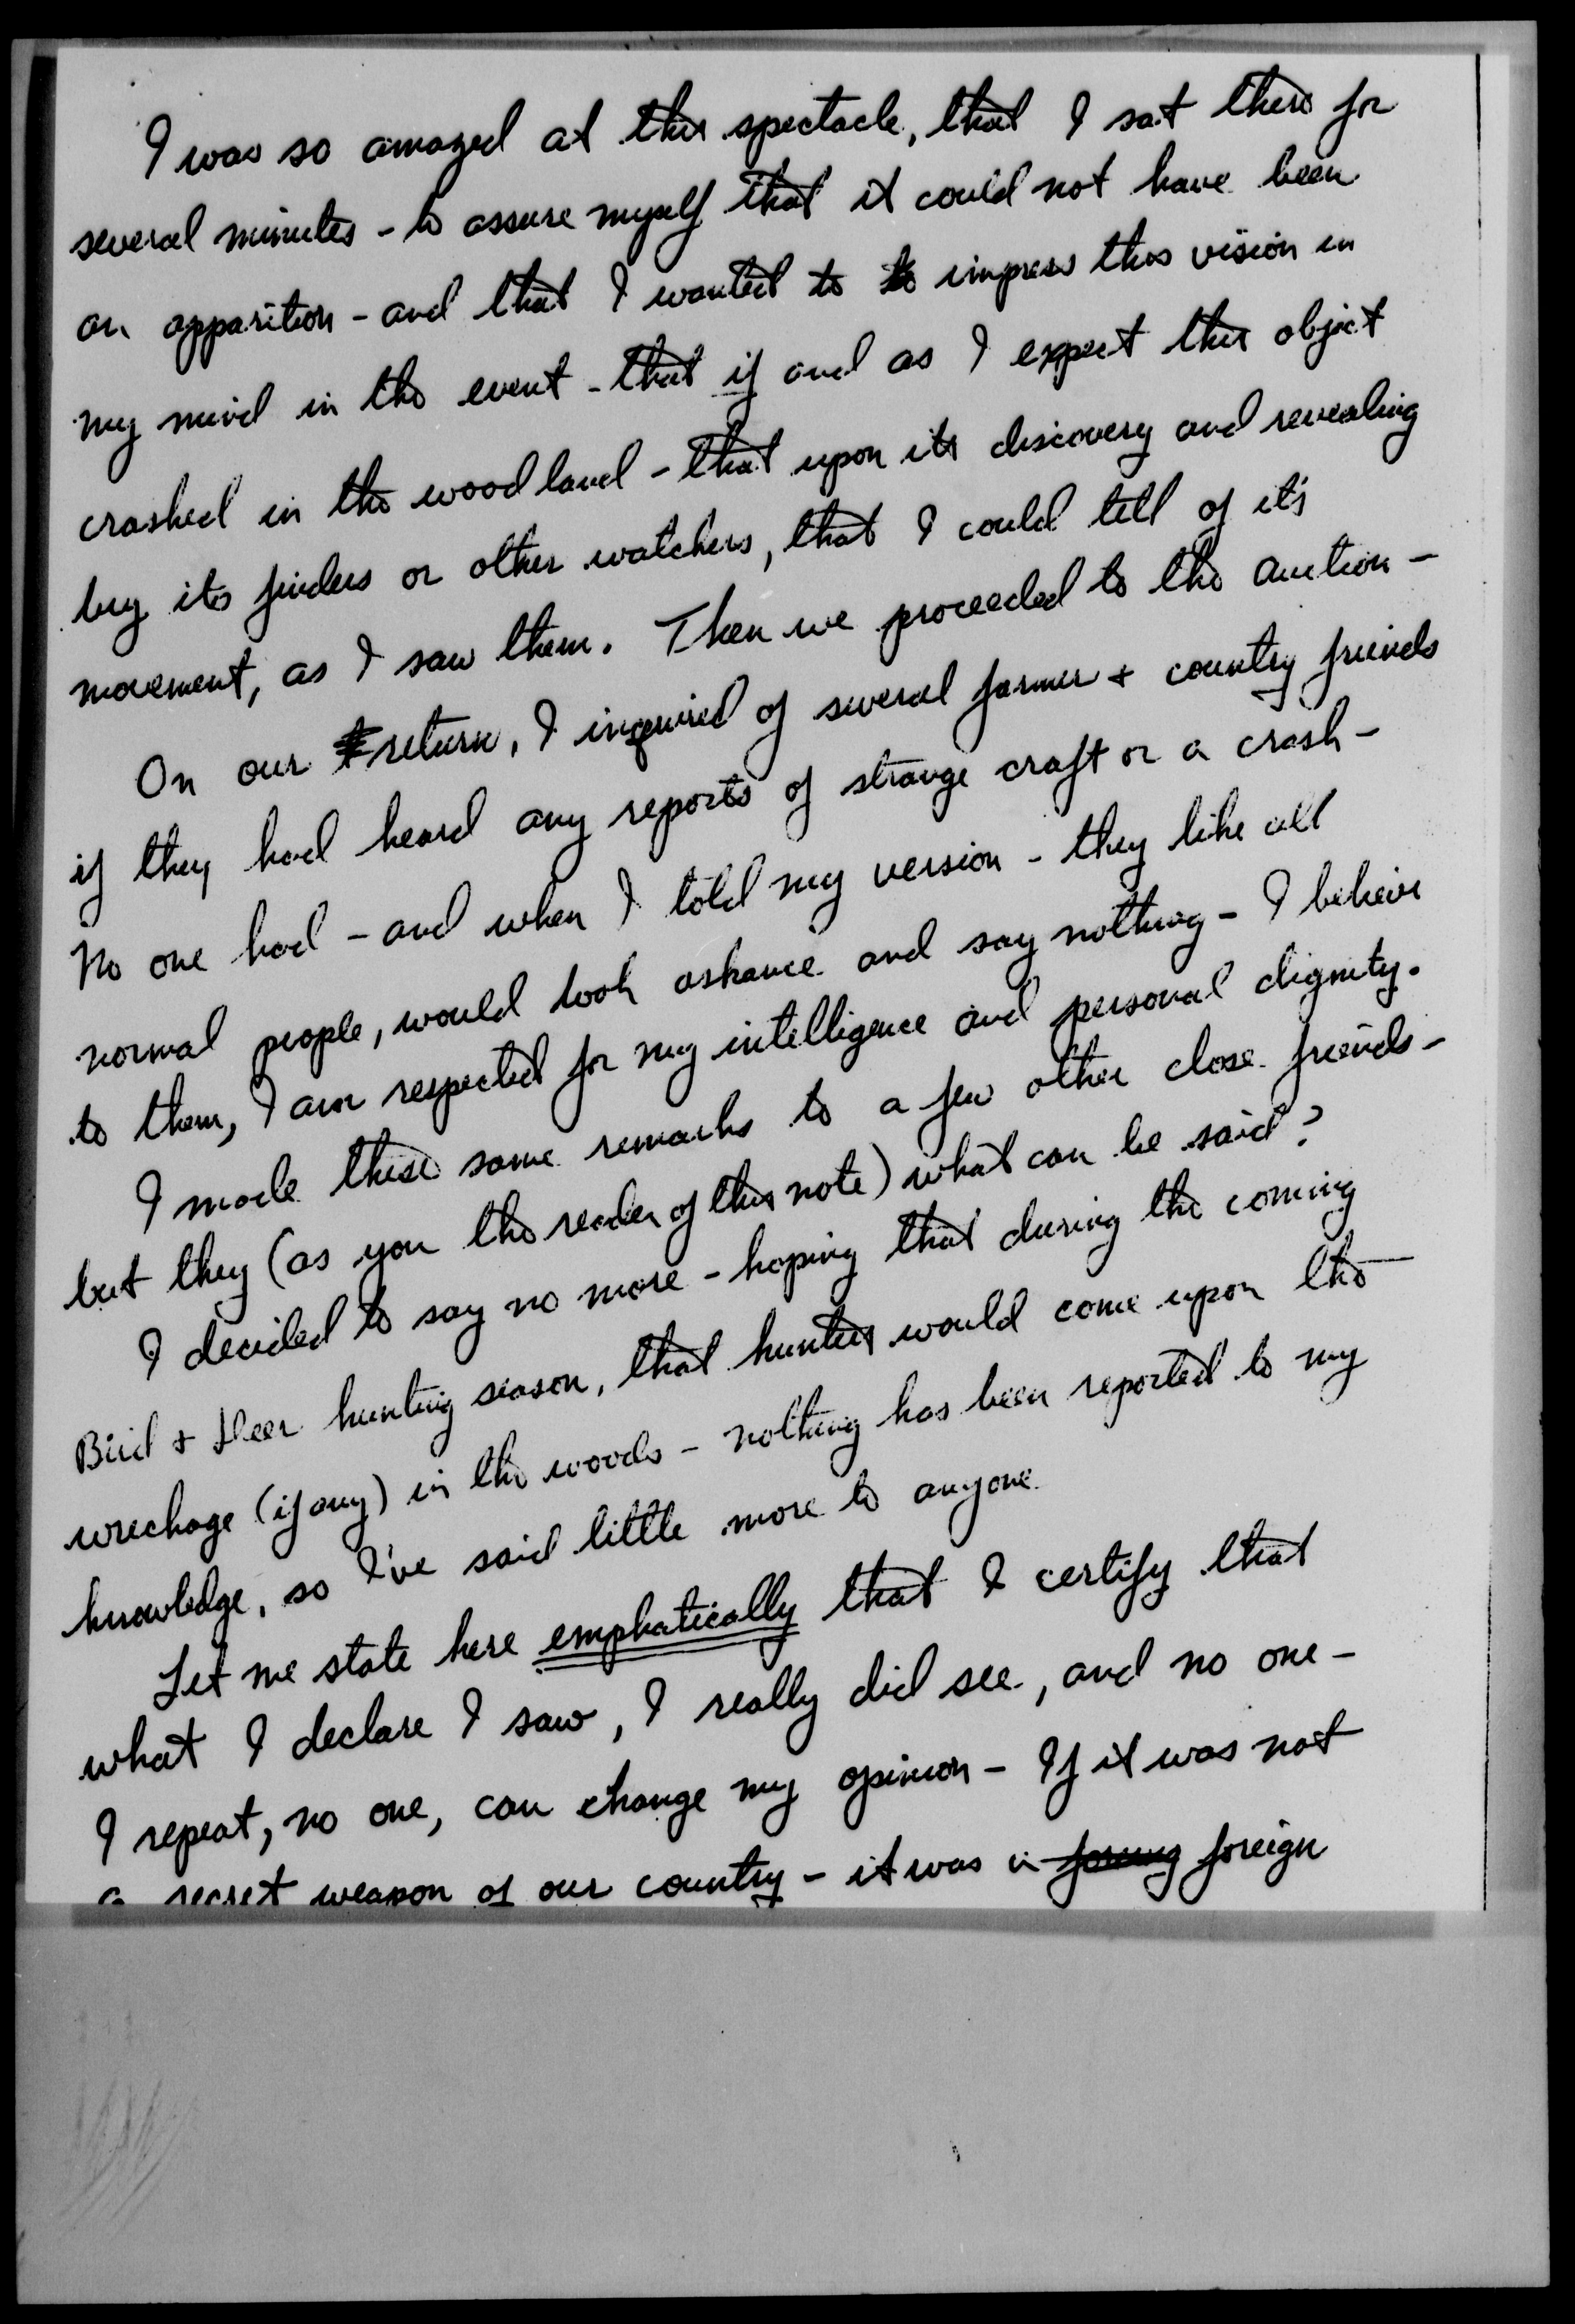 I was so amazed at this spectacle, that I sat there for
several minutes - to assure myself that it could not have been
an apparition - and that I wanted to to impress this vision in
my mind in the event - that if and as I expect this object
crashed in the woodland - that upon its discovery and revealing
by its finders or other watchers, that I could tell of it's
movement, as I saw them. Then we proceeded to the auction -
On our return, I inquired of several farmer + country friends
if they had heard any reports of strange craft or a crash -
No one had - and when I told my version - they like all
normal people, would look askance and say nothing - I believe
to them, I am respected for my intelligence and personal dignity.
I made these same remarks to a few other close friends -
but they (as you the reader of this note) what can be said?
I decided to say no more - hoping that during the coming
Bird + Deer hunting season, that hunters would come upon the
wreckage (if any) in the woods - nothing has been reported to my
knowledge, so I've said little more to anyone.
Let me state here emphatically that I certify that
what I declare I saw, I really did see, and no one -
I repeat, no one, can change my opinion - If it was not
a secret weapon of our country - it was foreign